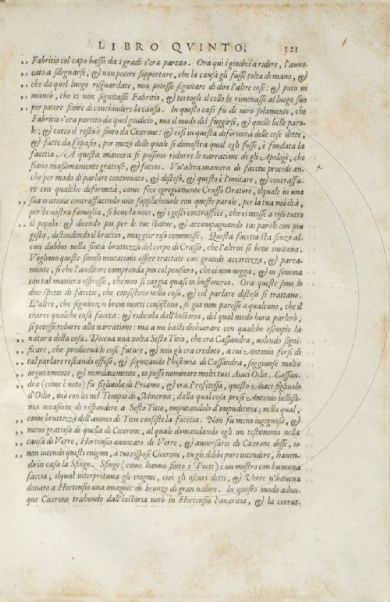 LIBRO QVINTO. 321
Fabritio col capo basso da i gradi s'era partito. Ora quì i giudici a ridere, l'auuo-
cato a sdegnarsi, & non potere sopportare, che la causa gli fusse tolta di mano, &
che da quel luogo risguardate, non potesse seguitare di dire l'altre cose: & poco ui
mancò, che ei non seguitasse Fabritio, & toltogli il collo lo rimenasse al luogo suo
per potere finire di conchiudere la causa. In questo caso fù di uero solamente, che
Fabritio s'era partito da quel giudicio, ma il modo del fuggirsi, & quelle belle paro-
le, & tutto il resto è finto da Cicerone: & così in questa deformità delle cose dette,
& fatte da Cepasio, per mezo delle quali si dimostra qual egli fusse, è fondata la
facetia. A questa maniera si possono ridurre le narrationi de gli Apologi, che
siano massimamente gratiosi, & faceti. Vn'altra maniera di facetie procede an-
che per modo di parlare continouato, & disteso, & questo è l'imitare, & contraffa-
re con qualche deformità, come fece egregiamente Crasso Oratore, ilquale in una
sua oratione contraffacendo uno supplicheuole con queste parole, per la tua nobiltà,
per la uostra famiglia, sì bene la uoce, & i gesti contraffece, che ei mosse a riso tutto
il popolo: & dicendo poi per le tue statue, & accompagnando tai parole con que
gesto, distendendo il braccio, maggior riso commosse. Questa facetia sta senza al-
cun dubbio nella finta bruttezza del corpo di Crasso, che l'altrui sì bene imitaua.
Vogliono queste simili imitationi essere trattate con grande accortezza, & parca-
mente, sì che l'auditore comprenda più col pensiero, che ei non uegga, & in somma
con tal maniera espresse, che non si caggia quasi in buffoneria. Ora queste sono le
due spetie di facetie, che consistono nella cosa, & col parlare disteso si trattano.
L'altre, che seguono, in breui motti consistono, se già non paresse a qualcuno, che il
trarre qualche cosa faceta, & ridicula dall'historia, del qual modo hora parlerò,
si potesse ridurre alla narratione: ma a me basti dichiarare con qualche esempio la
natura della cosa. Diceua una uolta Sesto Titio, che era Cassandra, uolendo signi-
ficare, che prediceua le cose future, & non gli era creduto, a cui Antonio forse di
tal parlare restando offeso, & sguainando l'historia di Cassandra, soggiunse molto
argutamente, & mordacemente, io posso nominare molti tuoi Aiaci Oilei. Cassan-
dra (come è noto) fu figliuola di Priamo, & era Profetessa, questo Aiace figliuolo
d'Oileo, usò con lei nel Tempio di Minerua; dalla qual cosa prese Antonio bellissi-
ma occasione di rispondere a Sesto Titio, imputandolo d'impudicitia; nella qual,
come bruttezza dell'animo di Titio consiste la facetia. Non fu meno ingegnosa, &
meno gratiosa di quella di Cicerone, al quale dimandando egli un testimonio nella
causa di Verre, Hortensio auuocato di Verre, & auuersario di Cicerone disse, io
non intendo questi enigmi, a cui rispose Cicerone, tu gli debbi pure intendere, hauen-
do in casa la Sfinge. Sfinge (come hanno finto i Poeti) è un mostro con humana
faccia, ilqual interpretaua gli enigmi, cioè gli oscuri detti, & Verre n'haueua
donato a Hortensio una imagine di bronzo di gran ualore. In questo modo adun-
que Cicerone trahendo dall'historia notò in Hortensio l'auaritia, & la corrut-